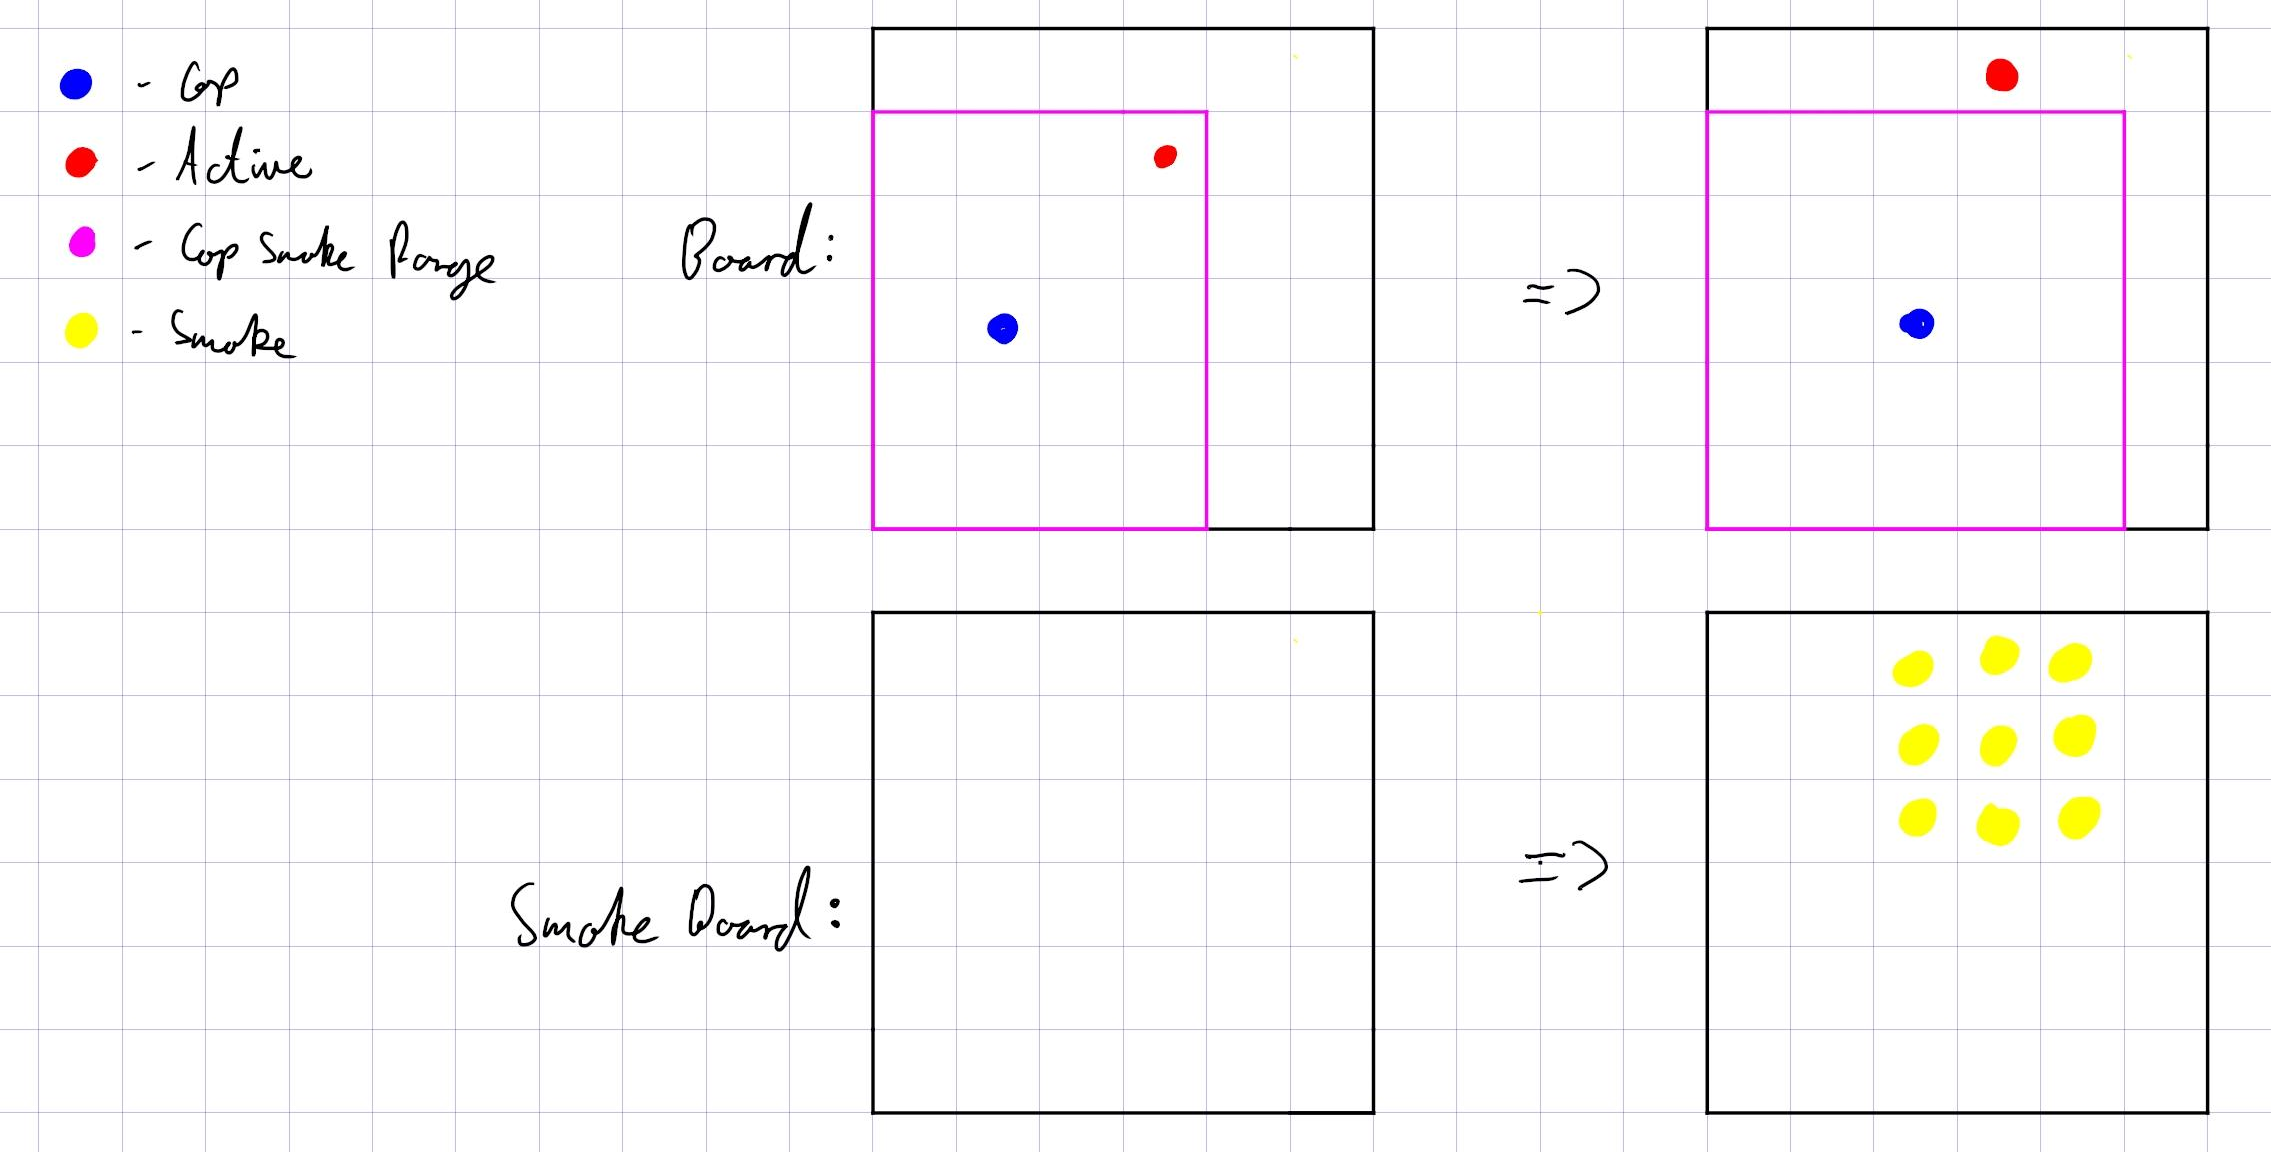 - Cop
- Active
- Cop Smoke Range
- Smoke
Board:
=>
Smoke Board:
=>